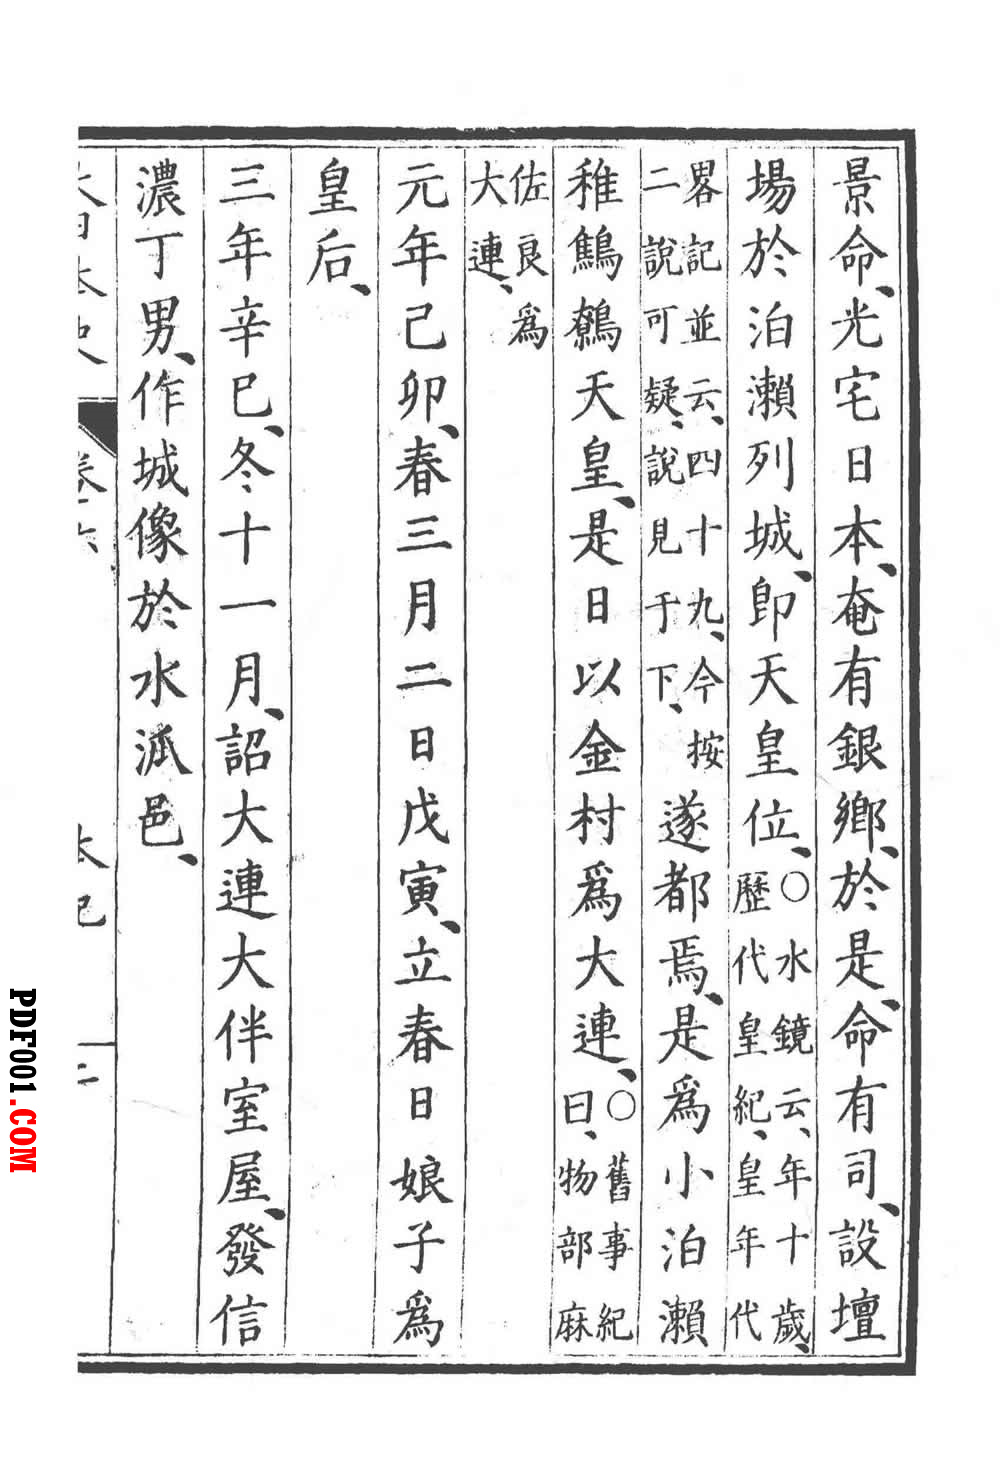 景命、光宅日本、奄有銀鄉、於是、命有司、設壇
場於泊瀨列城、卽天皇位、○水鏡云、年十歲、歷代皇紀、皇年代
畧記並云、四十九、今按二說可疑、說見于下、遂都焉、是爲小泊瀨
稚鷦鷯天皇、是日以金村爲大連、○舊事紀曰、物部麻
佐良爲大連、
元年己卯、春三月二日戊寅、立春日娘子爲
皇后、
三年辛巳、冬十一月、詔大連大伴室屋、發信
濃丁男、作城像於水派邑、
大日本史 卷六 本紀
PDF001.COM